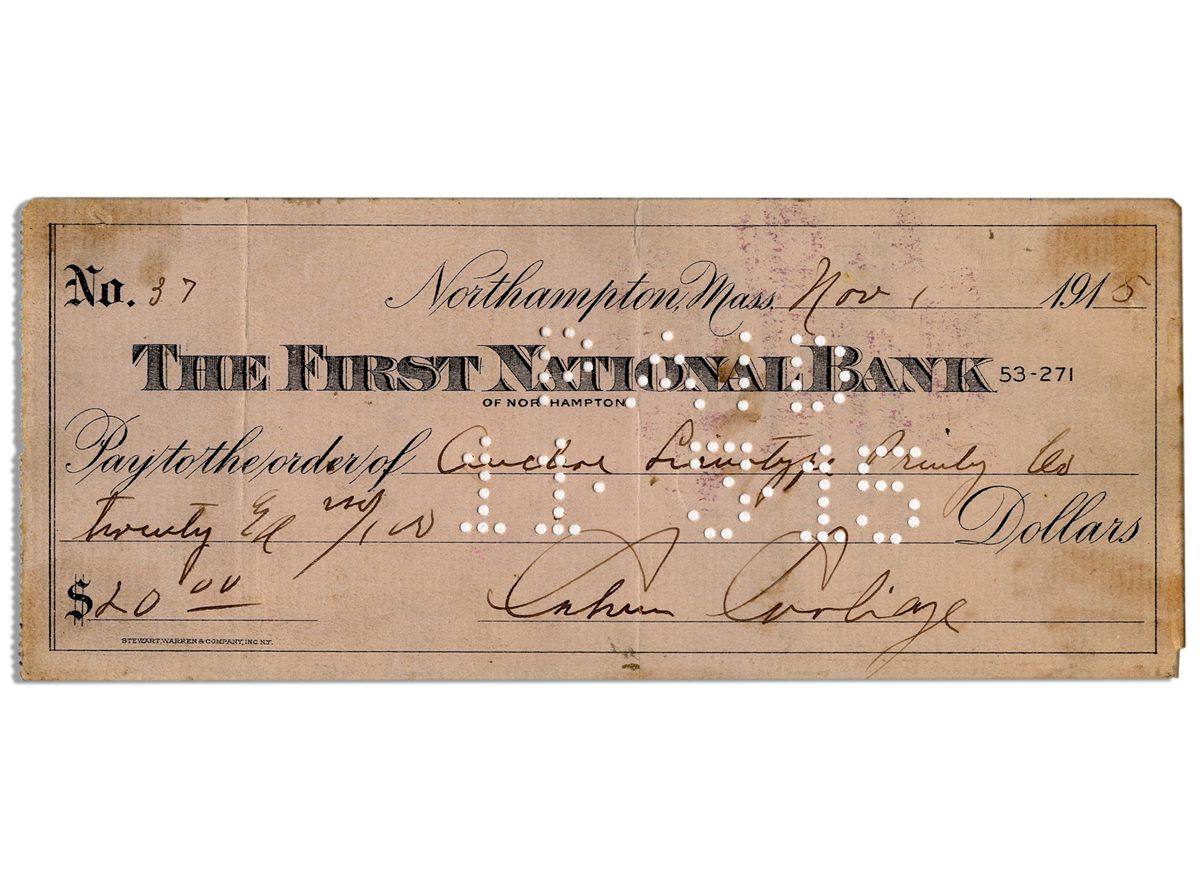 No. 37 Northampton, Mass. Nov 1 1915
THE FIRST NATIONAL BANK 53-271
OF NORTHAMPTON
PAID
Pay to the order of Anchor Linotype Printg Co
11·3·15
twenty 00/100 Dollars
$20 00 Calvin Coolidge
STEWART, WARREN & COMPANY, INC. N.Y.